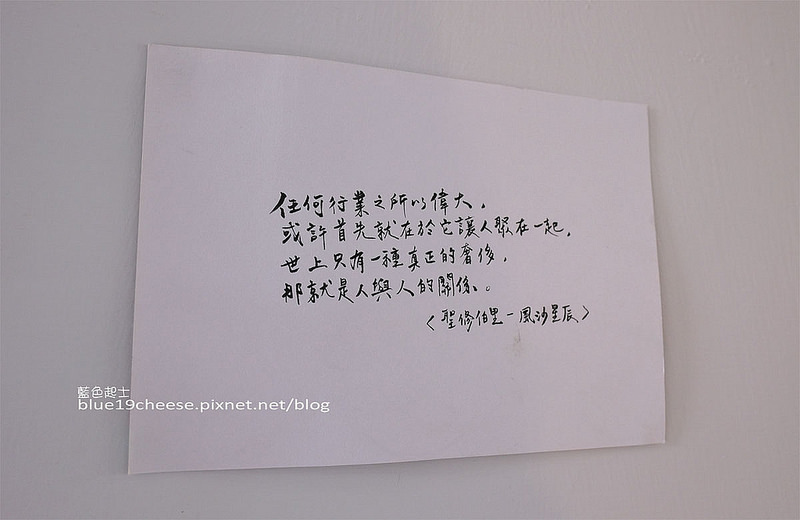 任何行業之所以偉大，
或許首先就在於它讓人聚在一起，
世上只有一種真正的奢侈，
那就是人與人的關係。
〈聖修伯里－風沙星辰〉
藍色起士
blue19cheese.pixnet.net/blog